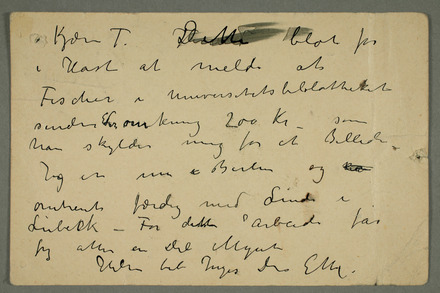 Kjære T. Dette blot for
i Hast at melde at
Fischer i universitetsbibliotheket
sender Dem omkring 200 Kr – som
han skylder mig for et Billede.
Jeg er nu i Berlin og
omtrent færdig med Linde i
Lübeck – For dette Arbeide får
jeg atter en Del Mynt
Hilsen